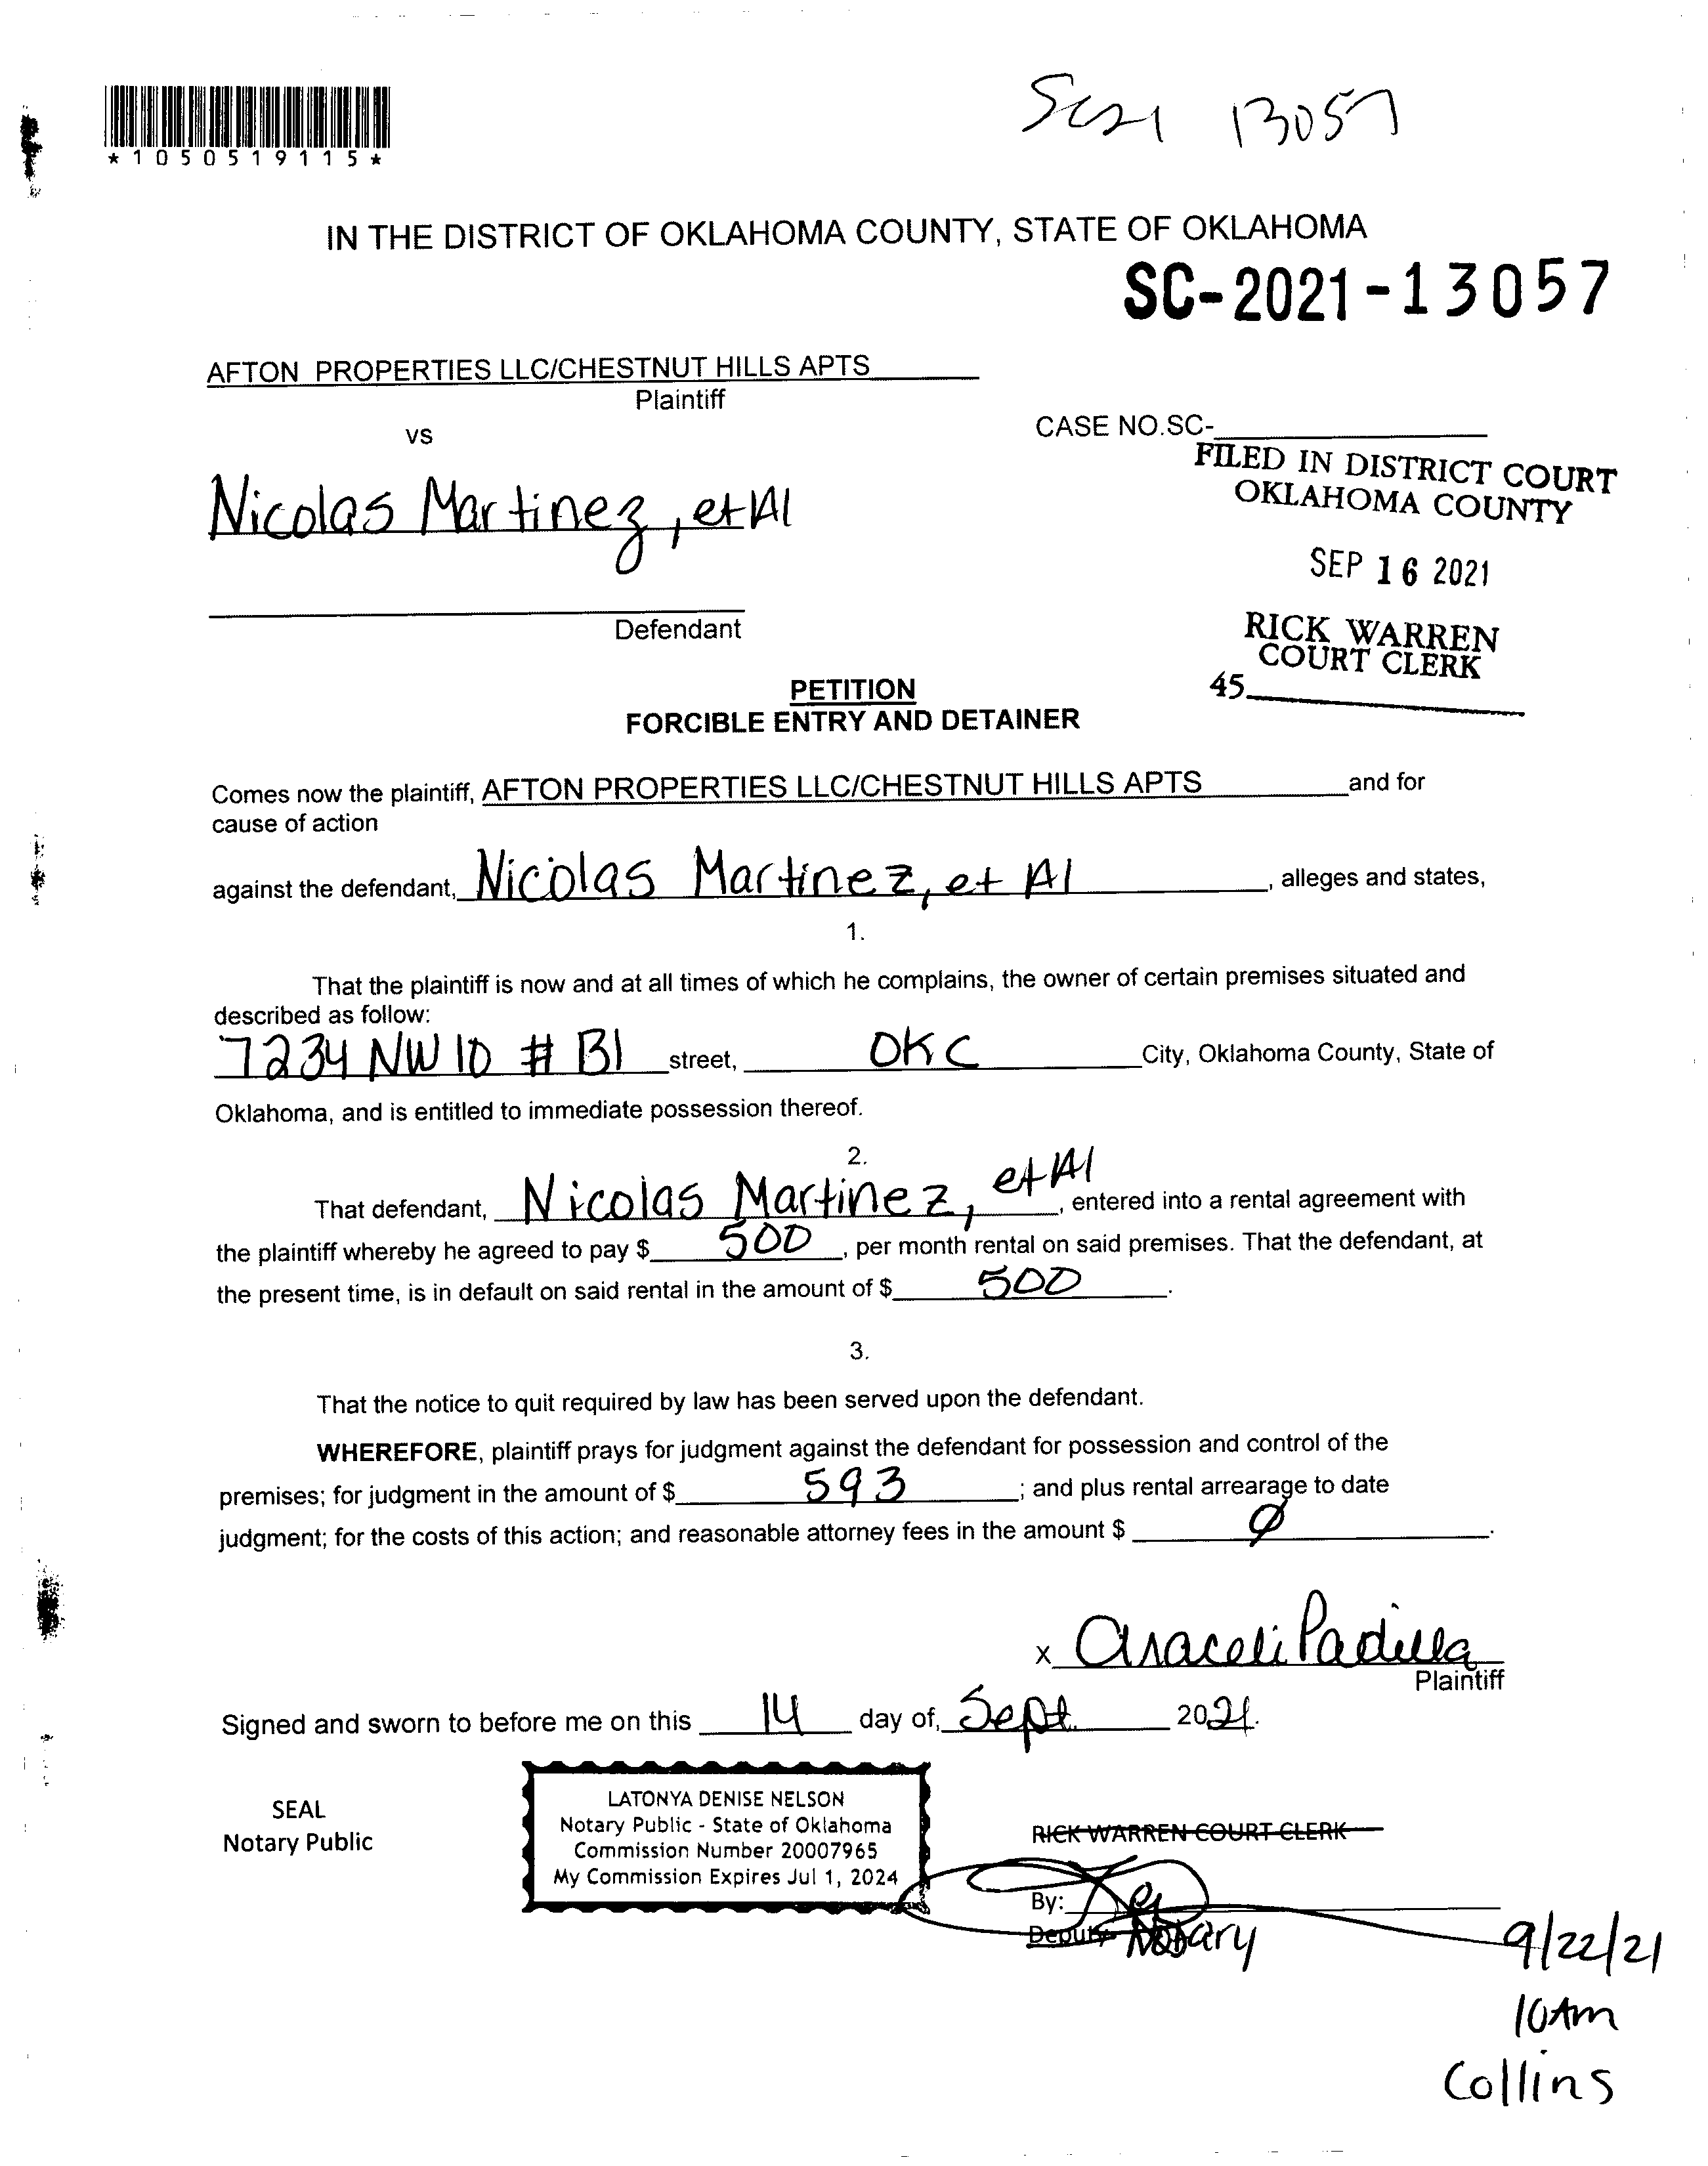 SC21 13057
*1050519115*
IN THE DISTRICT OF OKLAHOMA COUNTY, STATE OF OKLAHOMA
SC-2021-13057
AFTON PROPERTIES LLC/CHESTNUT HILLS APTS
Plaintiff
vs
CASE NO.SC-
FILED IN DISTRICT COURT
OKLAHOMA COUNTY
Nicolas Martinez, et Al
SEP 16 2021
Defendant
RICK WARREN
COURT CLERK
45
PETITION
FORCIBLE ENTRY AND DETAINER
Comes now the plaintiff, AFTON PROPERTIES LLC/CHESTNUT HILLS APTS and for
cause of action
against the defendant, Nicolas Martinez, et Al , alleges and states,
1.
That the plaintiff is now and at all times of which he complains, the owner of certain premises situated and
described as follow:
7234 NW 10 # B1 street, OKC City, Oklahoma County, State of
Oklahoma, and is entitled to immediate possession thereof.
2.
That defendant, Nicolas Martinez, et Al , entered into a rental agreement with
the plaintiff whereby he agreed to pay $ 500 , per month rental on said premises. That the defendant, at
the present time, is in default on said rental in the amount of $ 500 .
3.
That the notice to quit required by law has been served upon the defendant.
WHEREFORE, plaintiff prays for judgment against the defendant for possession and control of the
premises; for judgment in the amount of $ 593 ; and plus rental arrearage to date
judgment; for the costs of this action; and reasonable attorney fees in the amount $ Ø .
x Araceli Padilla
Plaintiff
Signed and sworn to before me on this 14 day of, Sept. 2021.
SEAL
Notary Public
LATONYA DENISE NELSON
Notary Public - State of Oklahoma
Commission Number 20007965
My Commission Expires Jul 1, 2024
RICK WARREN COURT CLERK
By:
Deputy Notary
9/22/21
10Am
Collins